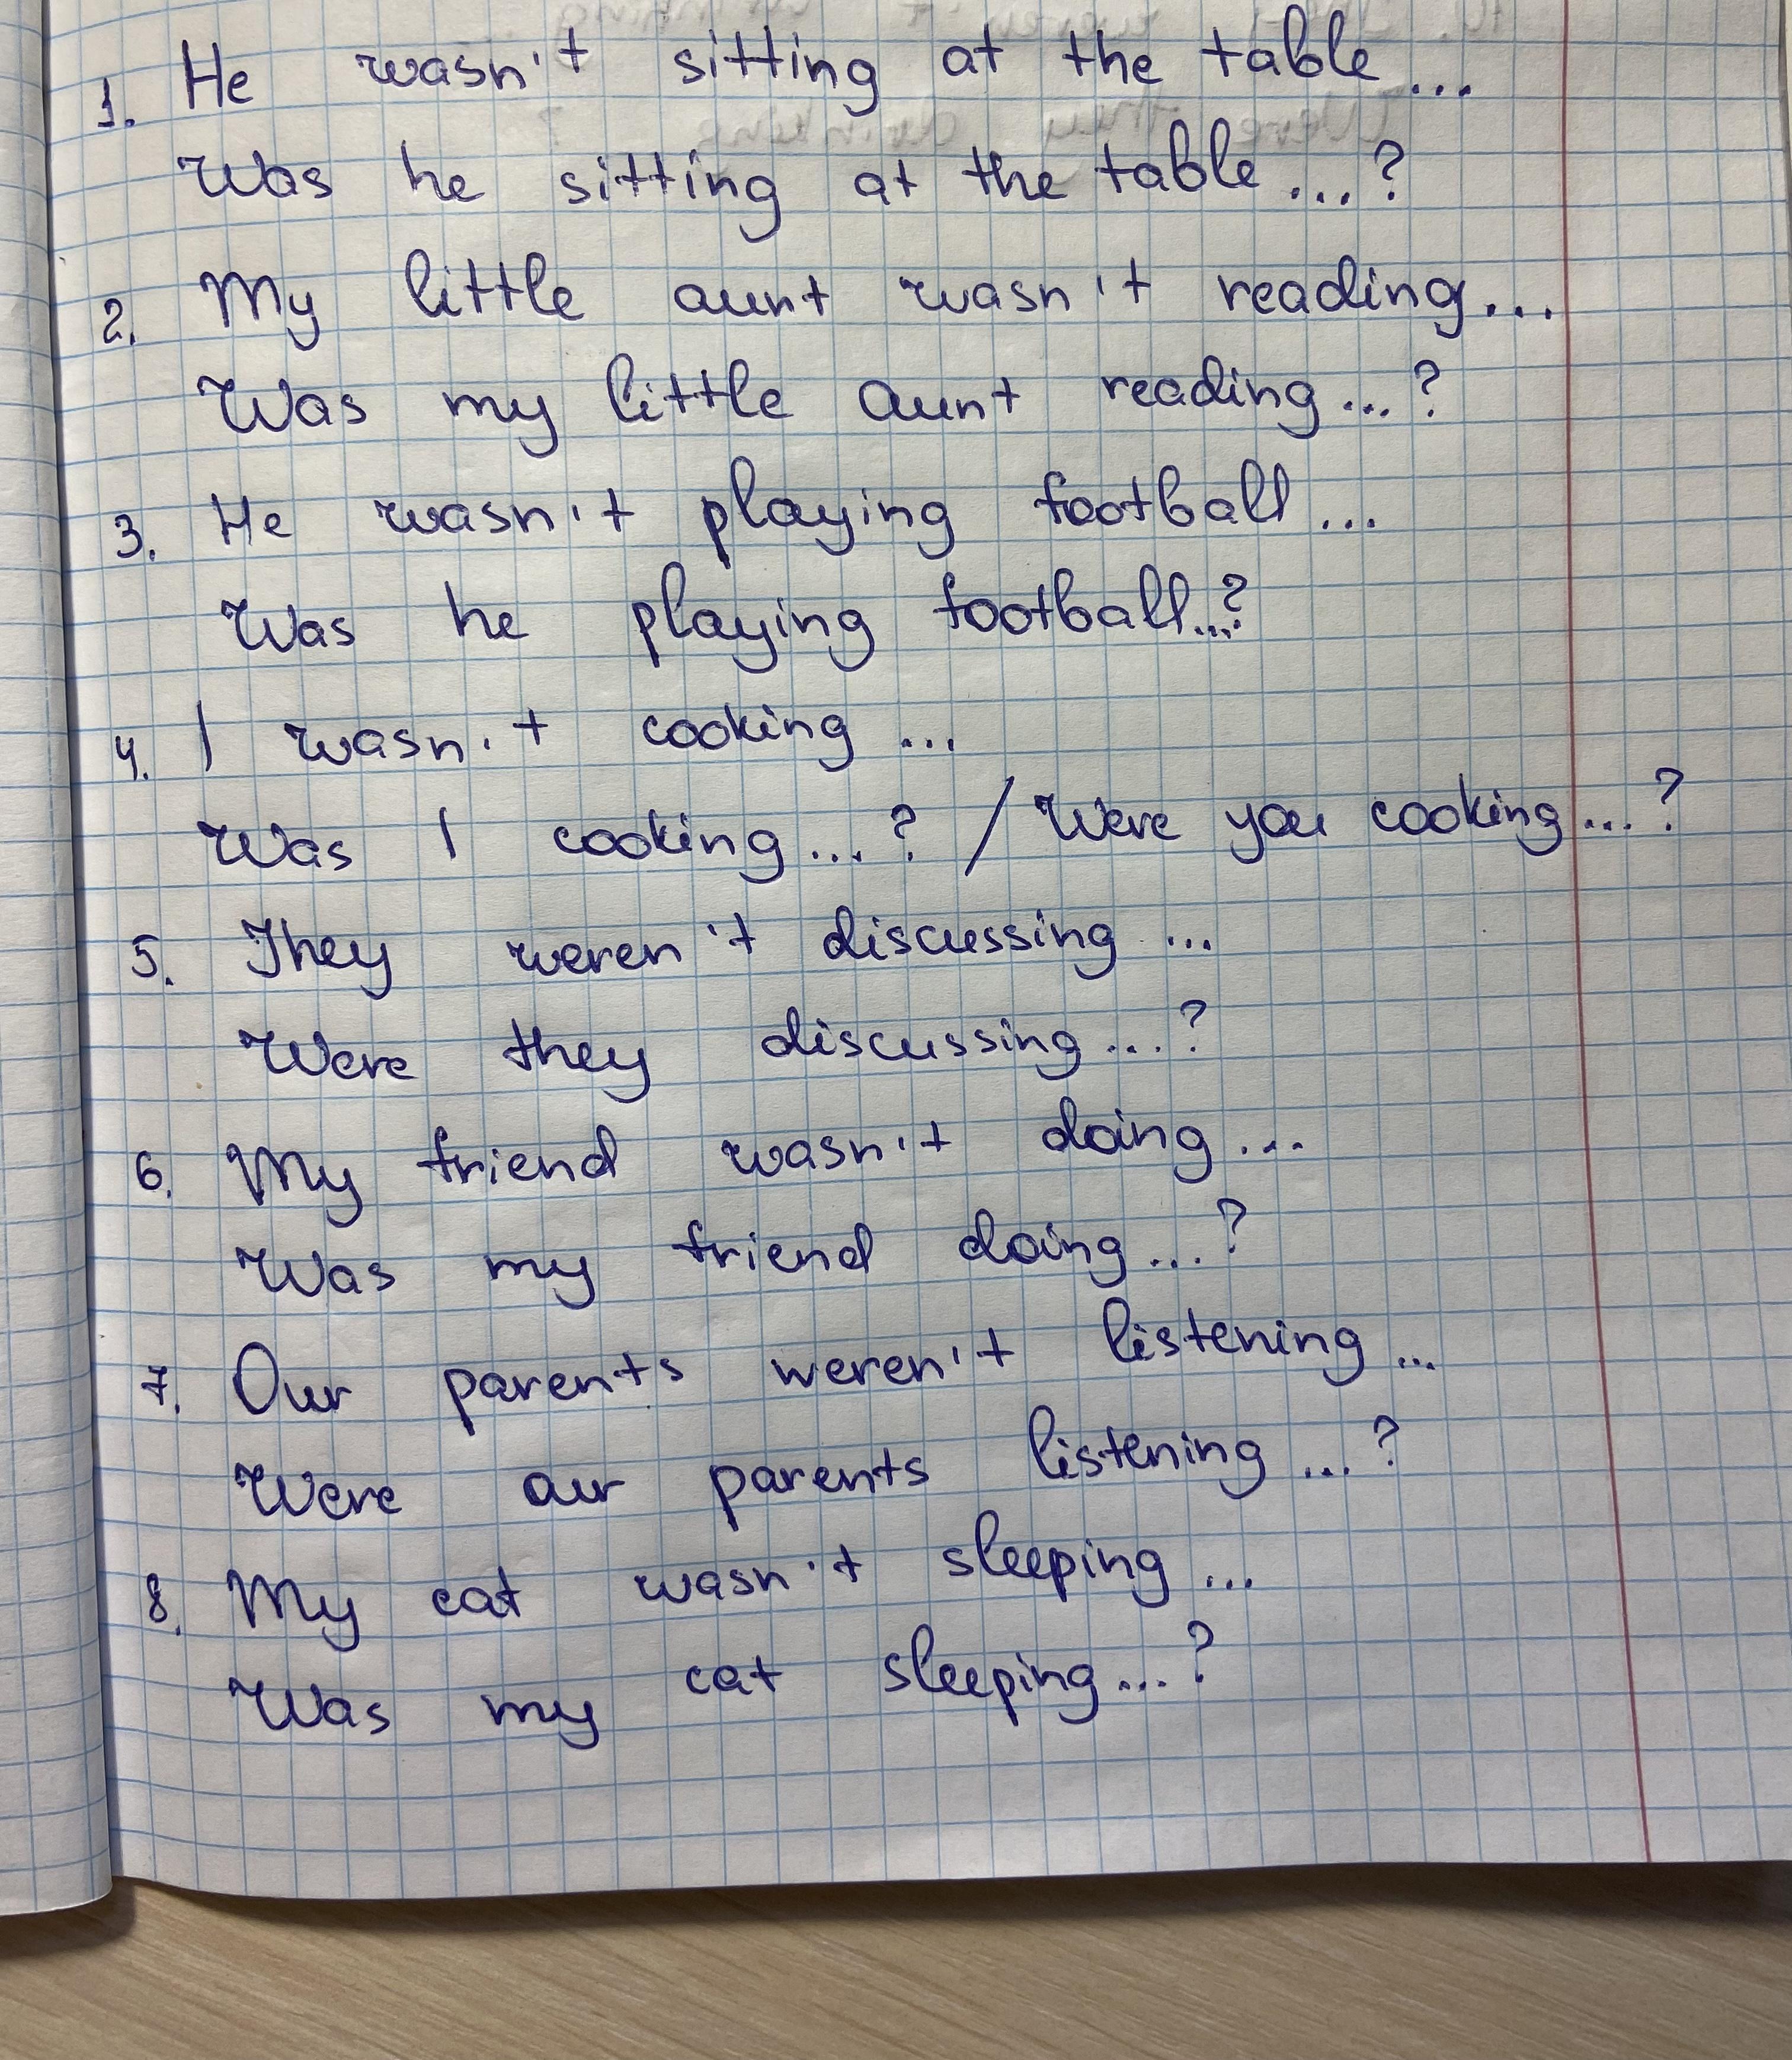 1. He wasn't sitting at the table...
Was he sitting at the table...?
2. My little aunt wasn't reading...
Was my little aunt reading...?
3. He wasn't playing football...
Was he playing football...?
4. I wasn't cooking...
Was I cooking...? / Were you cooking...?
5. They weren't discussing...
Were they discussing...?
6. My friend wasn't doing...
Was my friend doing...?
7. Our parents weren't listening...
Were our parents listening...?
8. My cat wasn't sleeping...
Was my cat sleeping...?